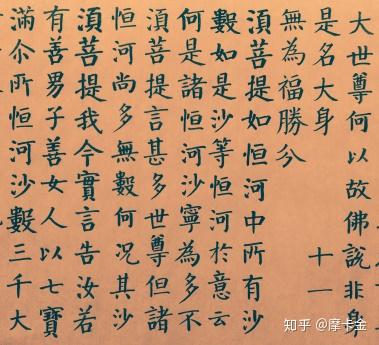 大世尊何以故佛說非身
是名大身 十一
無為福勝分
湏菩提如恒河中所有沙
數如是沙等恒河於意云
何是諸恒河沙寧為多不
湏菩提言甚多世尊但諸
恒河尚多無數何況其沙
湏菩提我今實言告汝若
有善男子善女人以七寶
滿尒所恒河沙數三千大
知乎 @摩卡金